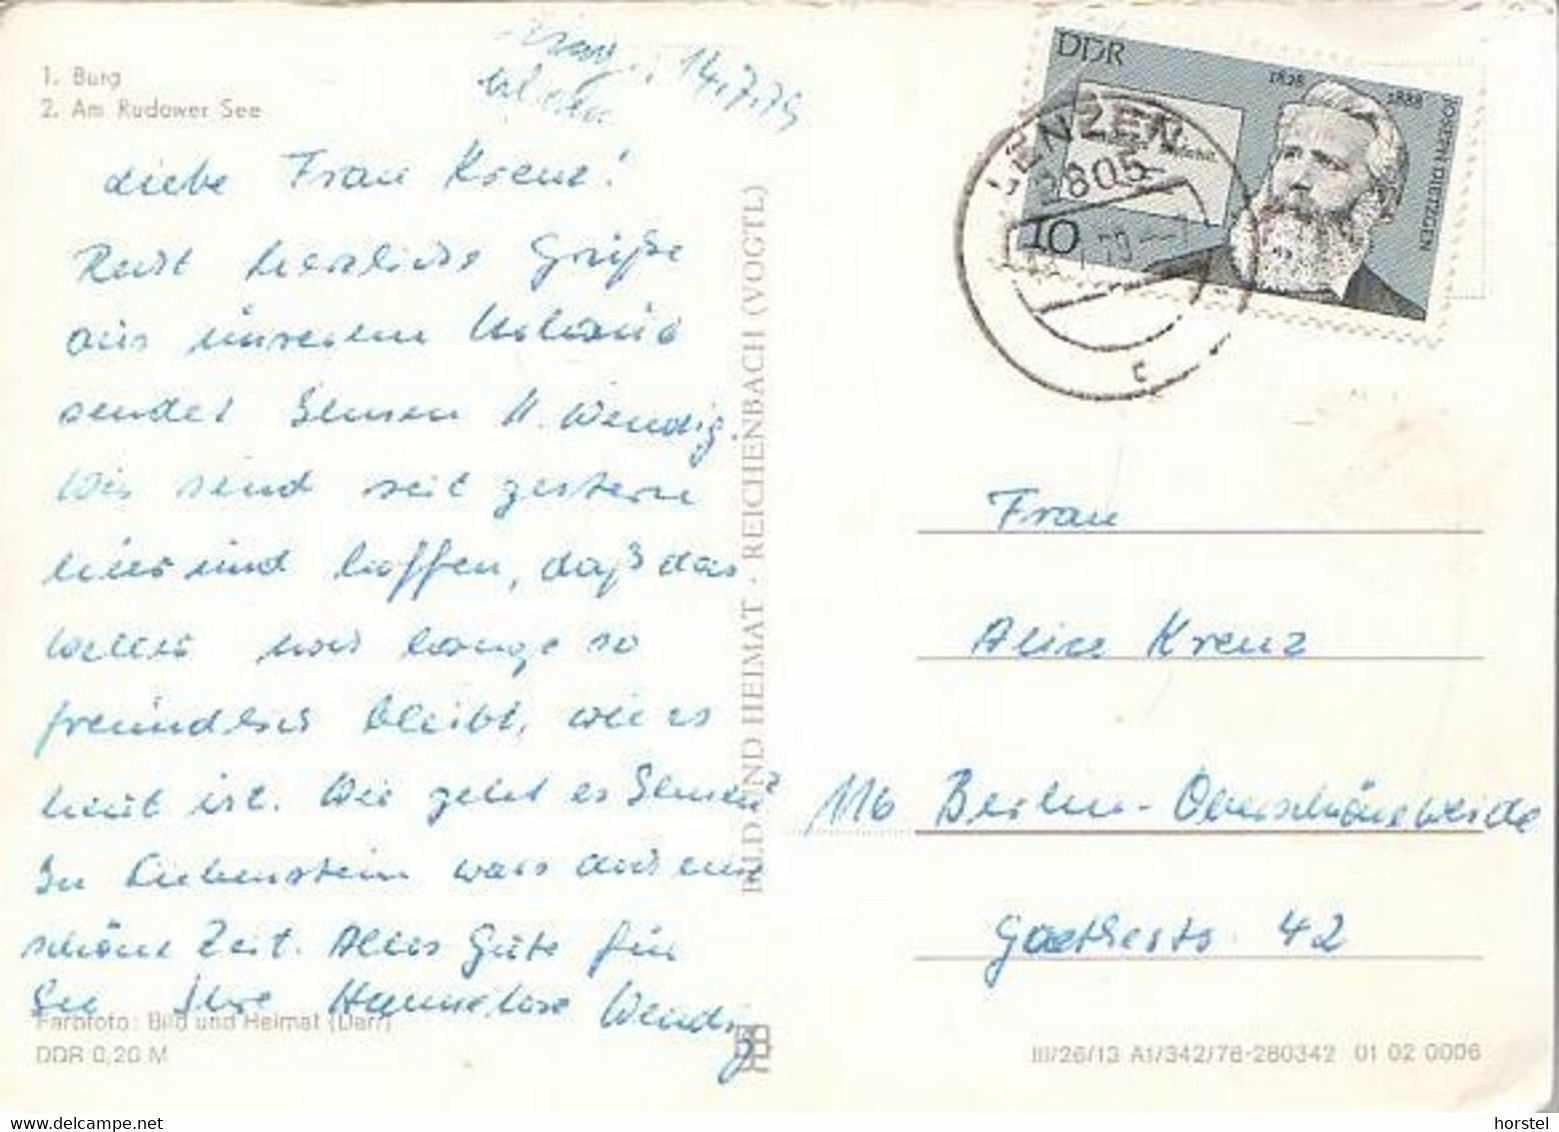 1. Burg
2. Am Rudower See
14.7.79
Liebe Frau Krenz!
Recht herzliche Grüße
aus unserem Urlaub
sendet Ihnen H. Wendig.
Wir sind seit gestern
hier und hoffen, daß das
Wetter noch lange so
freundlich bleibt, wie es
heut ist. Wie geht es Ihnen?
In Liebenstein war's auch eine
schöne Zeit. Alles Gute für
Sie Ihre Hannelore Wendig
Farbfoto: Bild und Heimat (Darr)
DDR 0,20 M
BILD UND HEIMAT · REICHENBACH (VOGTL)
DDR
1828 1888
JOSEPH DIETZGEN
10
LENZEN
Frau
Alice Krenz
116 Berlin-Oberschöneweide
Goethestr. 42
III/26/13 A1/342/78-280342 01 02 0006
horstel